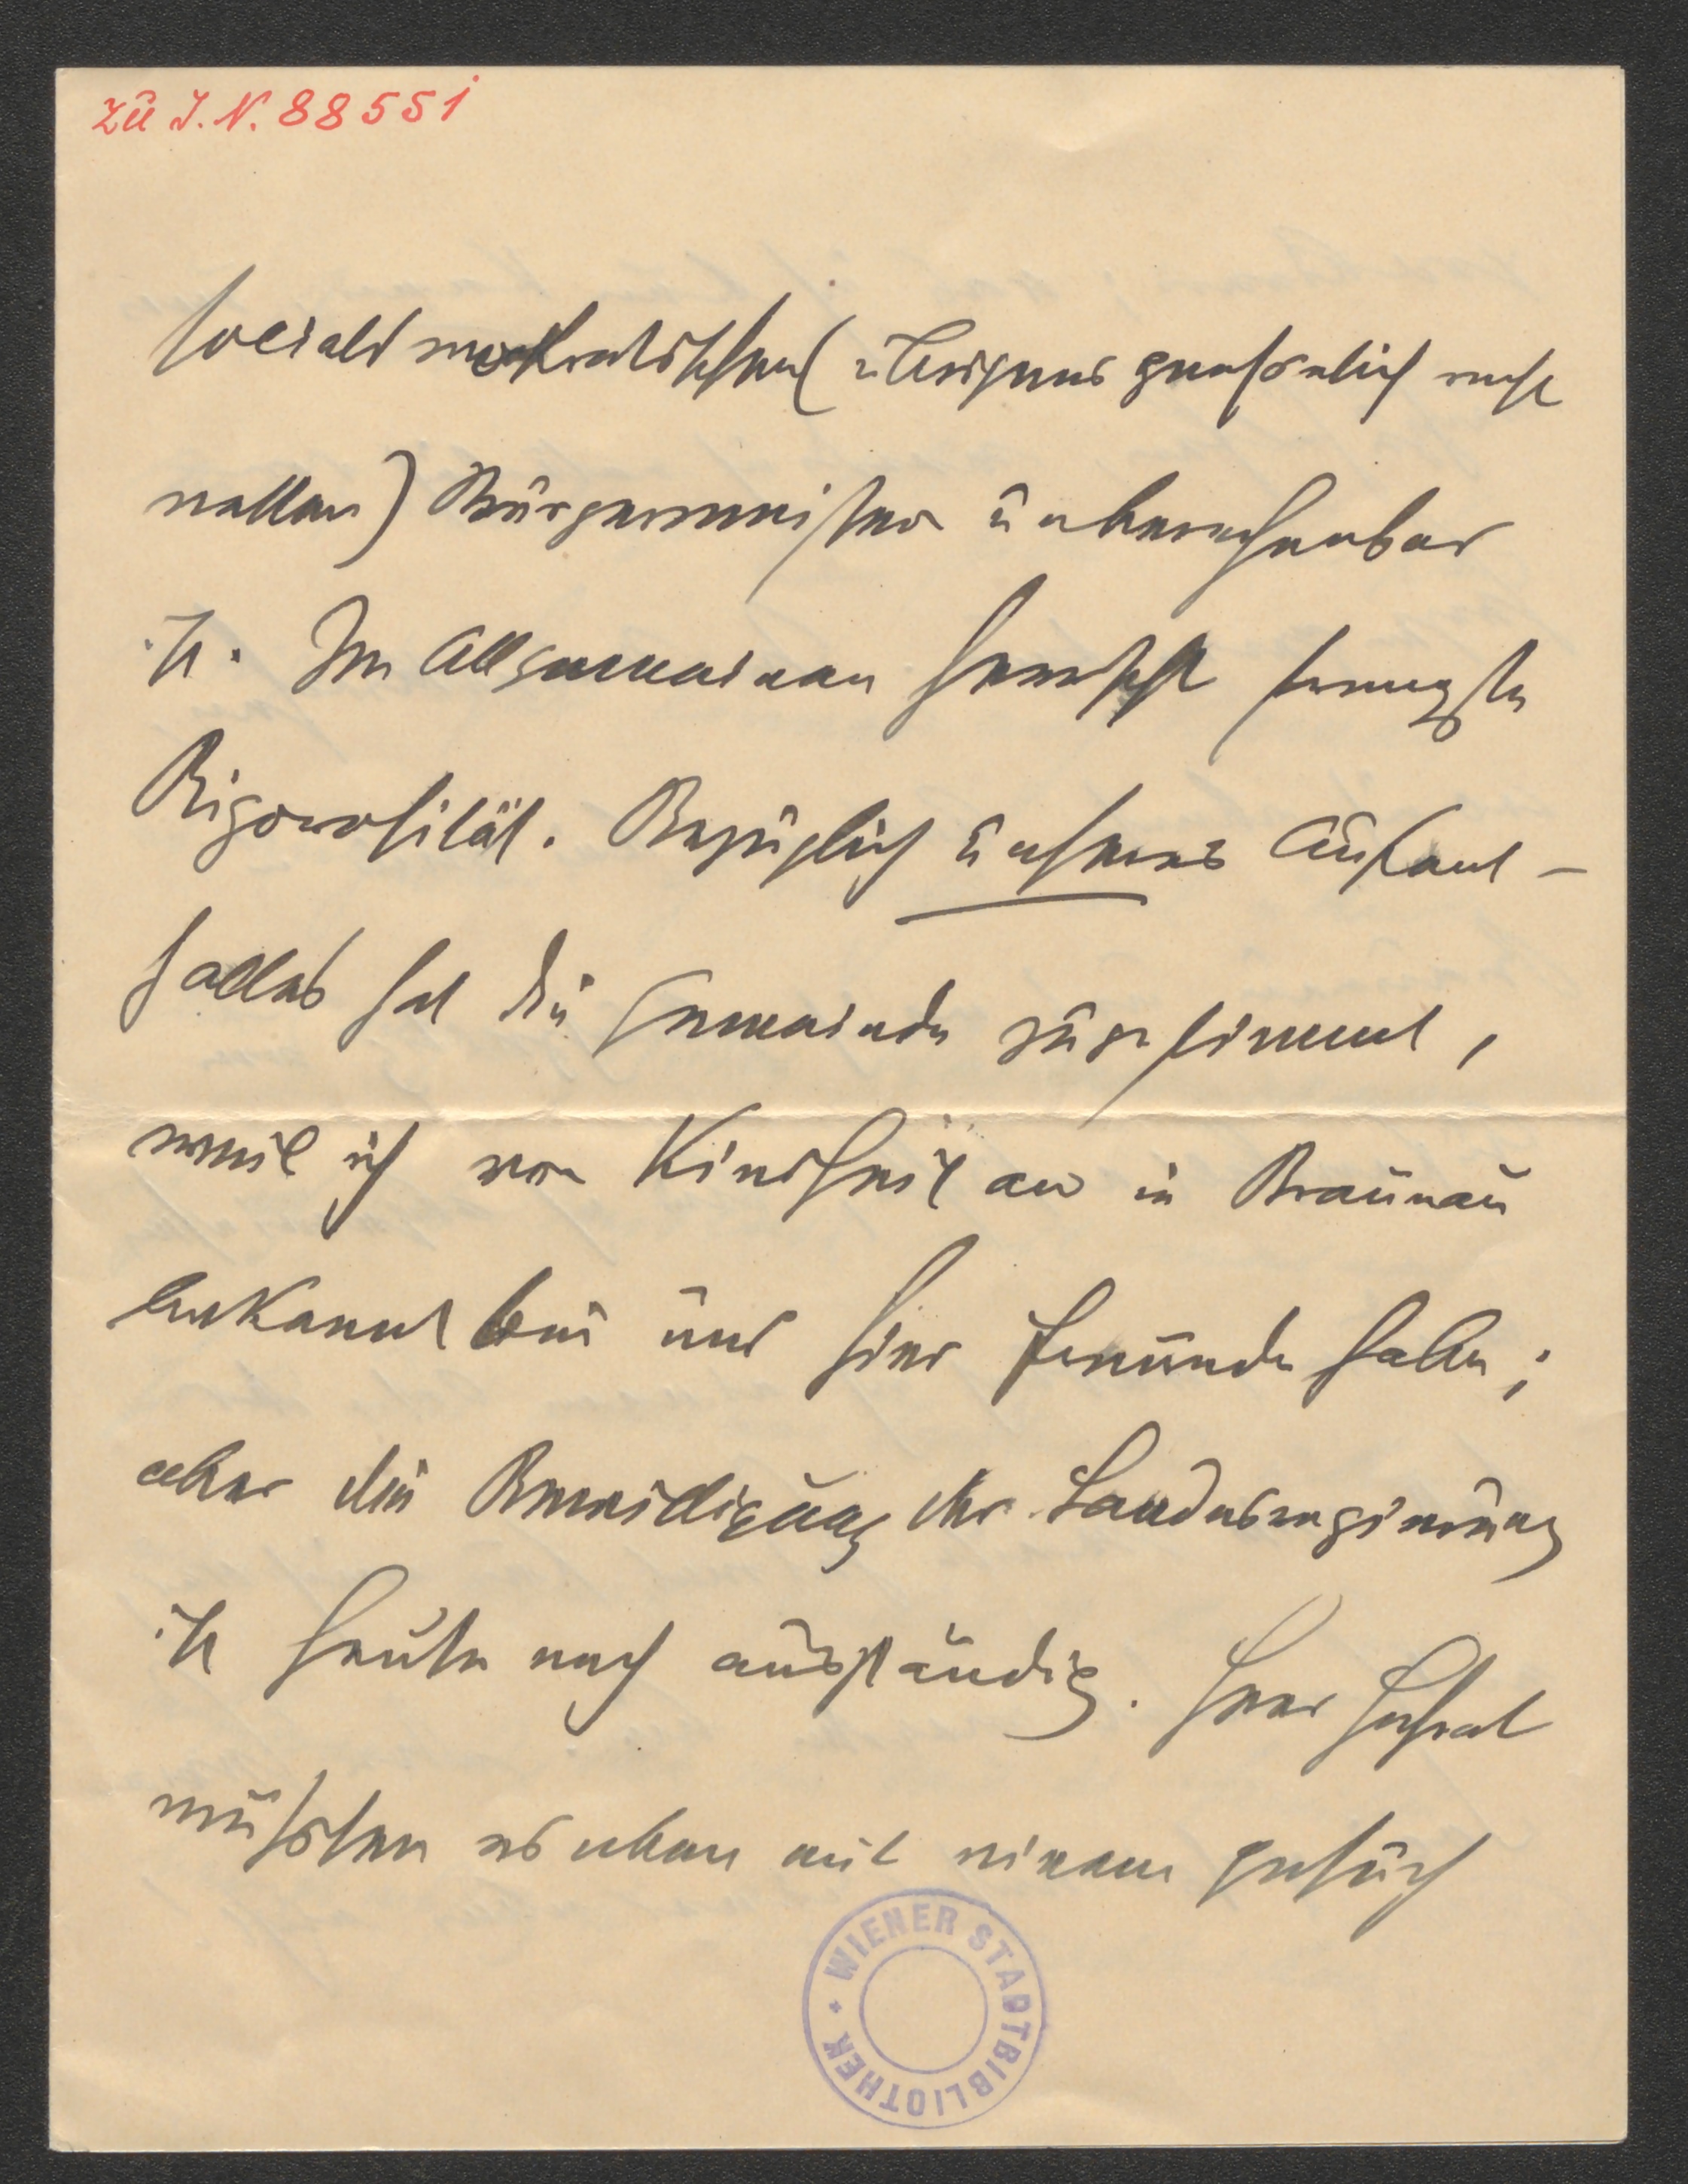 zu I.N. 88551
socialdemokratischen (übrigens persönlich recht
netten) Bürgermeister unberechenbar
ist. Im Allgemeinen herrscht strengste
Rigorosität. Bezüglich unseres Aufent-
haltes hat die Gemeinde zugestimmt,
weil ich von Kindheit an in Braunau
bekannt bin und hier Freunde habe;
aber die Bewilligung der Landesregierung
ist heute noch ausständig. Herr Hofrat
müssten es eben mit einem Gesuch
WIENER STADTBIBLIOTHEK